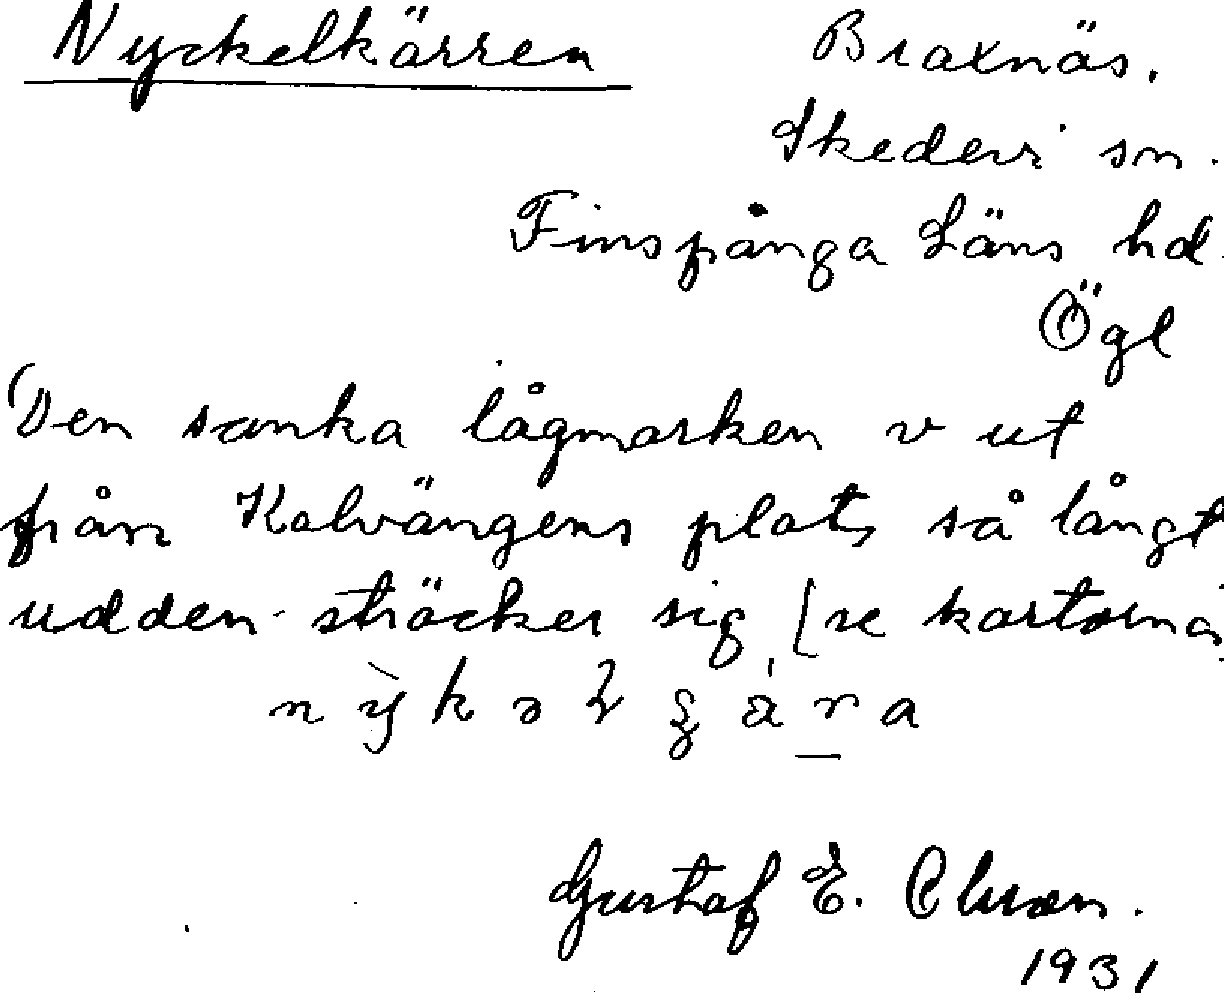 Nyckelkärren Braxnäs.
Skedevi sn.
Finspånga Läns hd.
Ögl
Den sanka lågmarken v ut
från Kalvängens plats så långt
udden sträcker sig [se kartorna]
Gustaf E.
1931